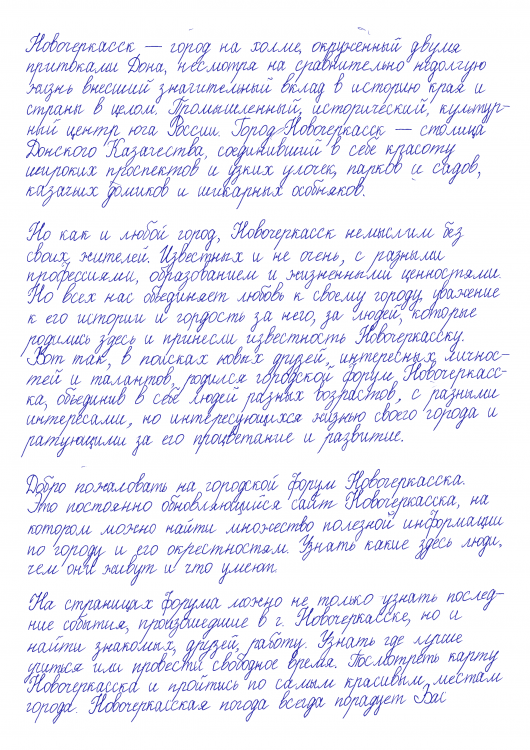 Новочеркасск — город на холме, окруженный двумя
притоками Дона, несмотря на сравнительно недолгую
жизнь внесший значительный вклад в историю края и
страны в целом. Промышленный, исторический, культур-
ный центр юга России. Город Новочеркасск — столица
Донского Казачества, соединивший в себе красоту
широких проспектов и узких улочек, парков и садов,
казачьих домиков и шикарных особняков.
Но как и любой город, Новочеркасск немыслим без
своих жителей. Известных и не очень, с разными
профессиями, образованием и жизненными ценностями.
Но всех нас объединяет любовь к своему городу, уважение
к его истории и гордость за него, за людей, которые
родились здесь и принесли известность Новочеркасску.
Вот так, в поисках новых друзей, интересных лично-
стей и талантов, родился городской форум Новочеркасс-
ка, объединив в себе людей разных возрастов, с разными
интересами, но интересующихся жизнью своего города и
ратующими за его процветание и развитие.
Добро пожаловать на городской форум Новочеркасска.
Это постоянно обновляющийся сайт Новочеркасска, на
котором можно найти множество полезной информации
по городу и его окрестностям. Узнать какие здесь люди,
чем они живут и что умеют.
На страницах форума можно не только узнать послед-
ние события, произошедшие в г. Новочеркасске, но и
найти знакомых, друзей, работу. Узнать где лучше
учиться или провести свободное время. Посмотреть карту
Новочеркасска и пройтись по самым красивым местам
города. Новочеркасская погода всегда порадует Вас